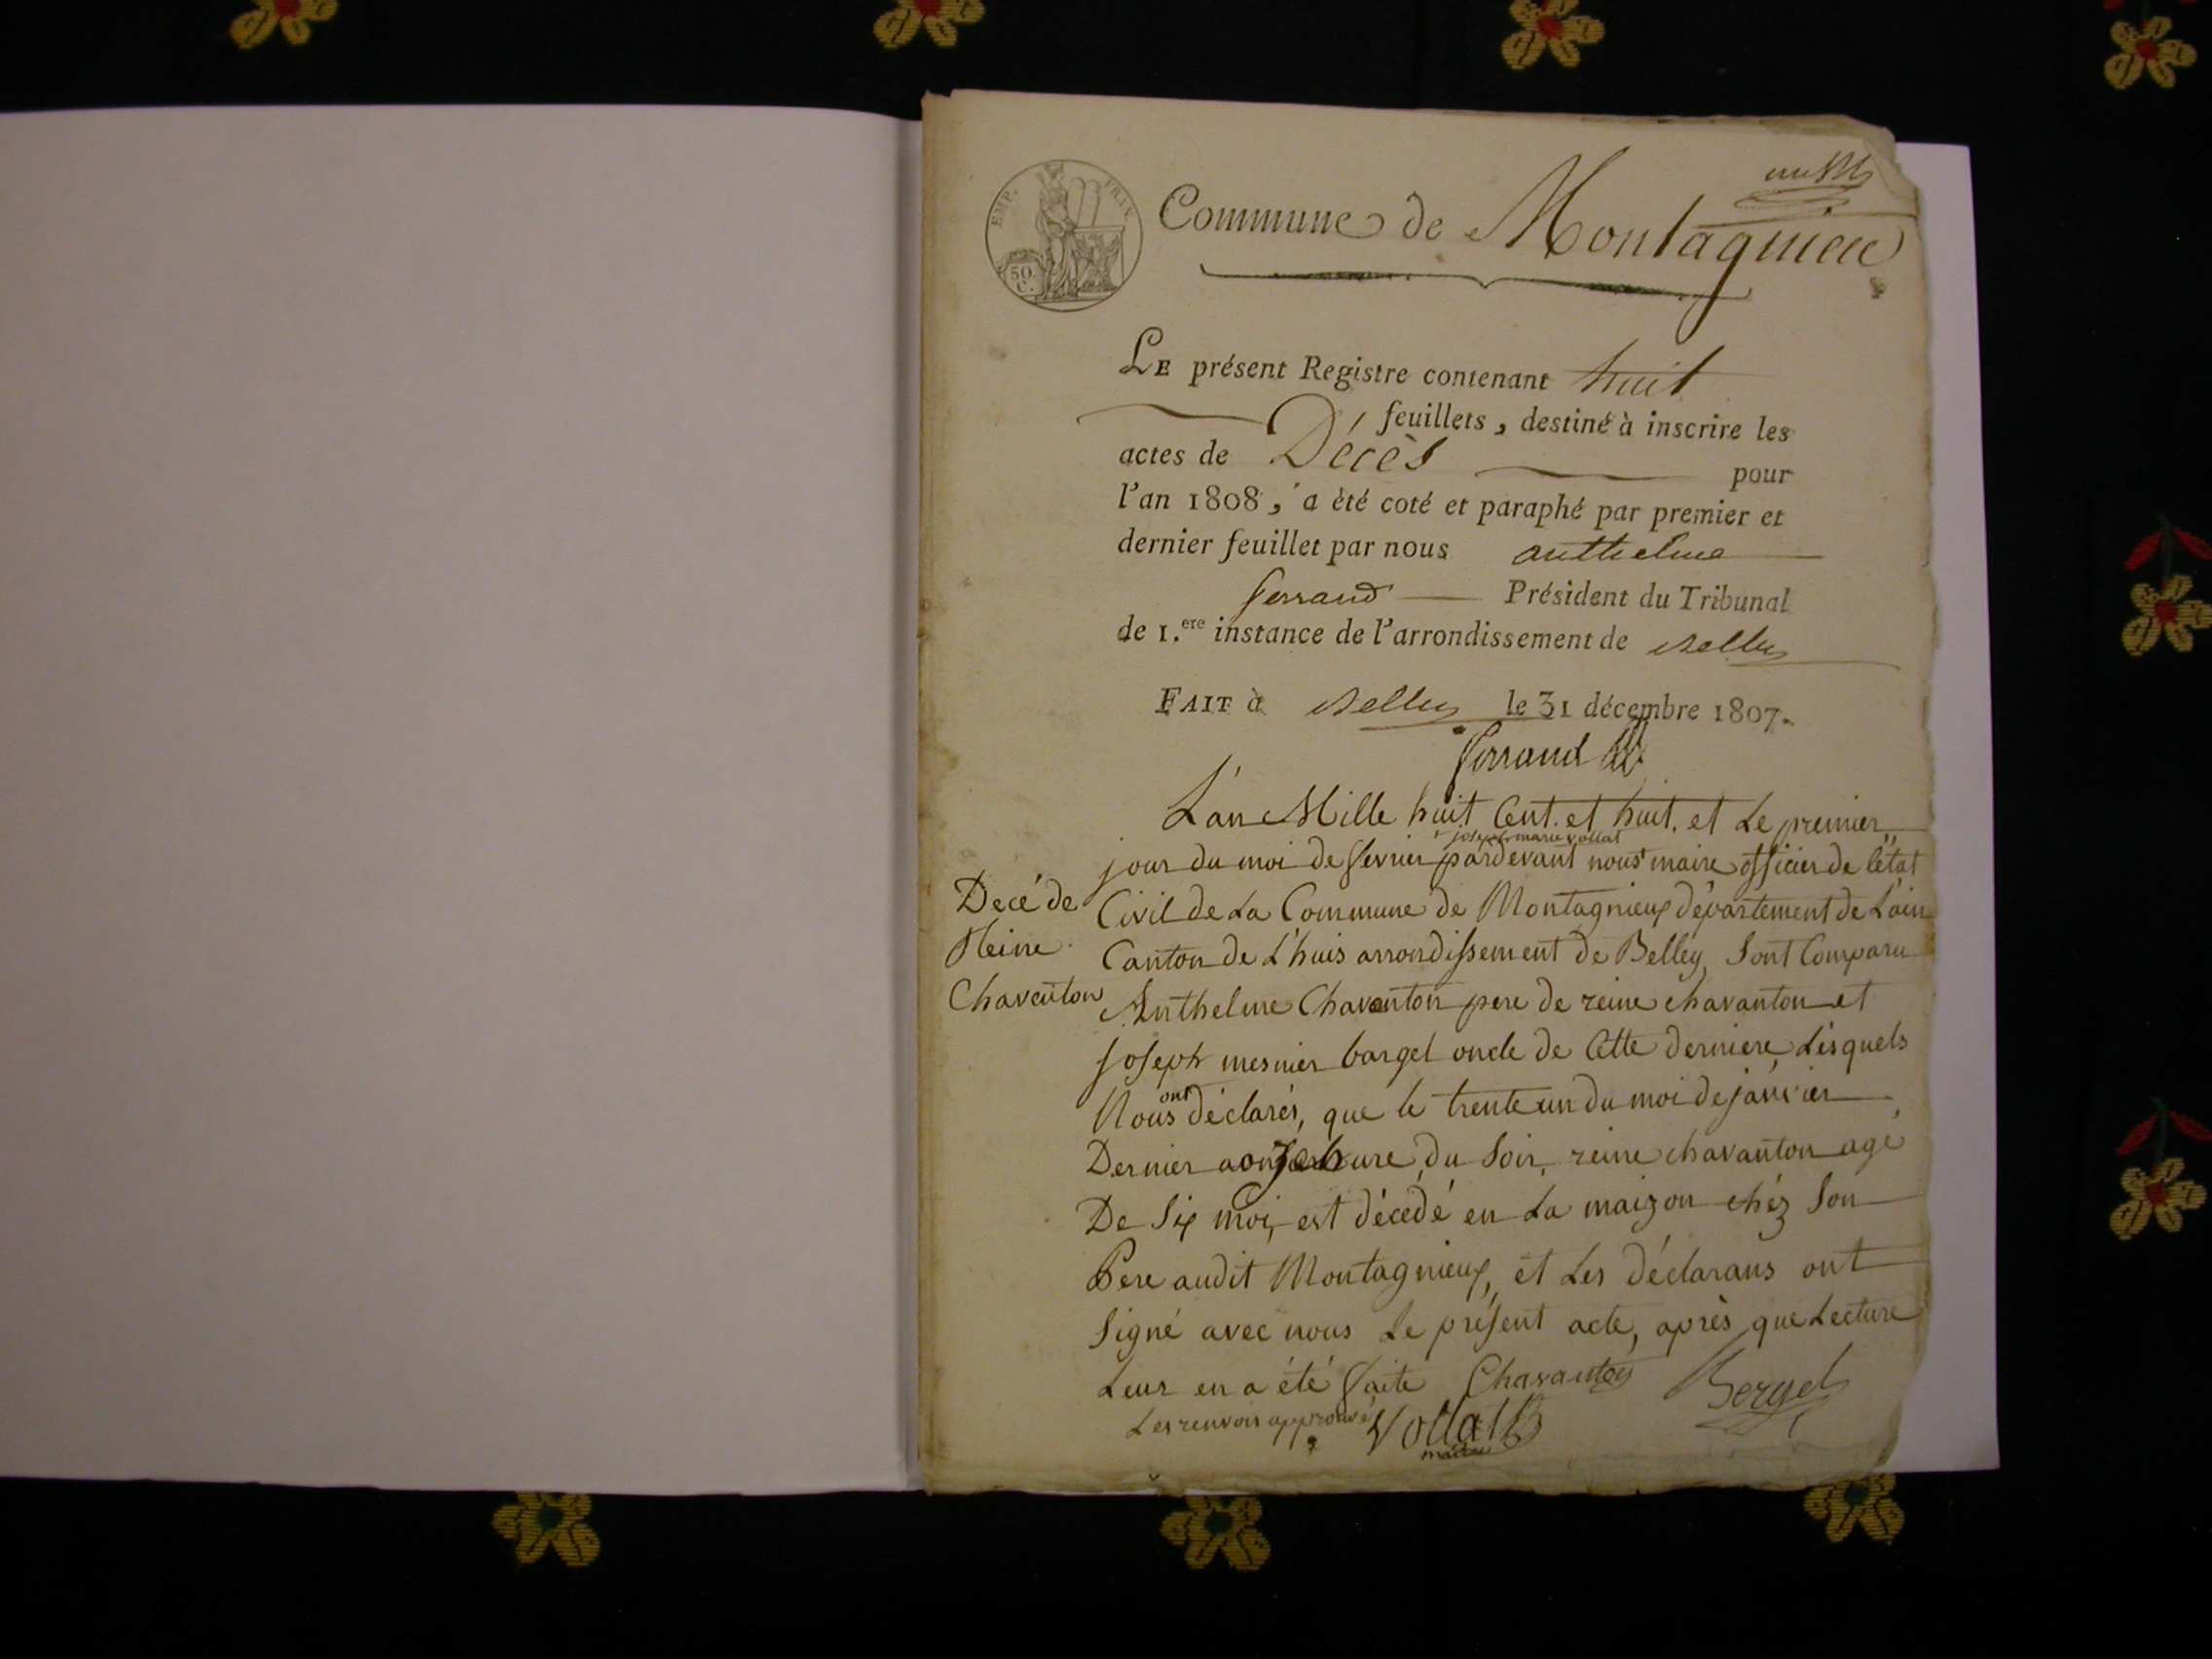 EMP. FRAN.
50 C.
Commune de Montagnieu
LE présent Registre contenant huit
feuillets, destiné à inscrire les
actes de Décès pour
l'an 1808, a été coté et paraphé par premier et
dernier feuillet par nous anthelme
ferrand Président du Tribunal
de 1.ere instance de l'arrondissement de Belley
FAIT à Belley le 31 décembre 1807.
ferrand
L'an Mille huit Cent et huit, et Le premier
joseph marie vollat
jour du moi de fevrier pardevant nous maire officier de l'état
Civil de La Commune de Montagnieux département de L'ain
Canton de L'huis arrondissement de Belley, Sont Comparu
Decé de
Reine
Chavanton
Anthelme Chavanton pere de reine chavanton et
Joseph mesnier bargel oncle de Cette derniere, Lesquels
Nous ont déclarés, que le trente un du moi de janvier
Dernier a onze hure du Soir, reine chavanton agé
De Six moi, est décedé en La maizon chéz Son
Pere audit Montagnieux, et Les déclarans ont
Signé avec nous Le présent acte, après que Lecture
Leur en a été faite Chavanton Bergel
Les renvois approuvé Vollat
maire